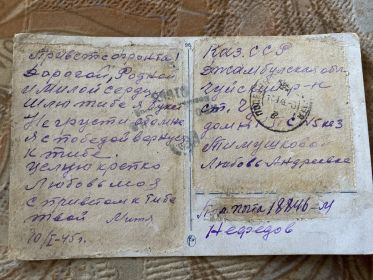 Привет с фронта!
Дорогой, Родной
и Милой сердцу
Шлю тибе я букет
Не грусти обо мне
я с победой вернус
к тибе.
целую крепко
Любовь моя
с приветом к тибе
твой Митя
10/I-45 г.
Каз. ССР
Джамбулская обл
Чуйский р-н
ст.
дом №1
Тимушковой
Любовь Андреевне
почта 18846-М
Нефедов